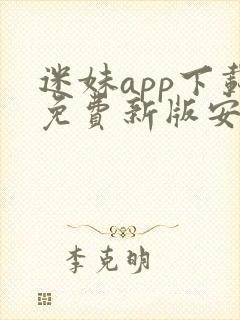 迷妹app下载
免费新版安
李克明